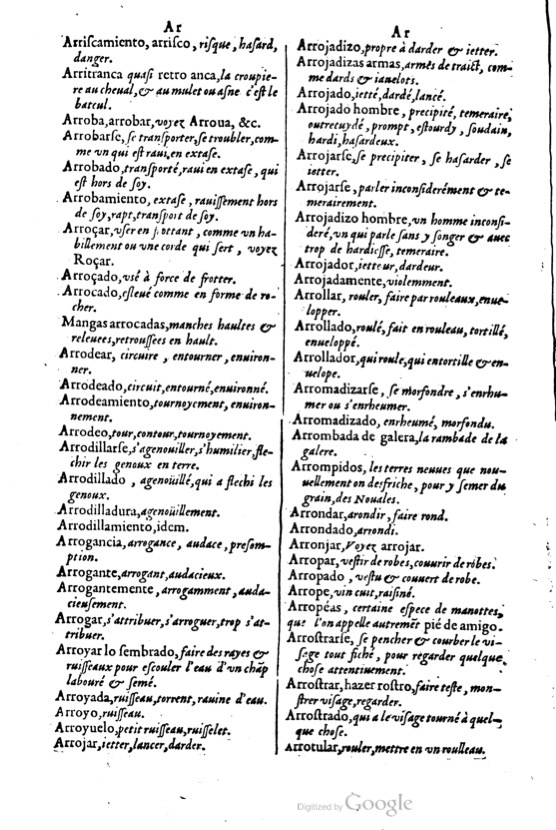 Ar
Arriſcamiento, arriſco, riſque, haſard,
danger.
Arritranca quaſi retro anca, la croupie-
re au cheual, & au mulet ou aſne c'eſt le
batcul.
Arroba, arrobar, voyez Arroua, &c.
Arrobarſe, ſe tranſporter, ſe troubler, com-
me vn qui eſt raui, en extaſe.
Arrobado, tranſporté, raui en extaſe, qui
eſt hors de ſoy.
Arrobamiento, extaſe, rauiſſement hors
de ſoy, rapt, tranſport de ſoy.
Arroçar, vſer en frottant, comme vn ha-
billement ou vne corde qui ſert, voyez
Roçar.
Arroçado, vſé à force de frotter.
Arrocado, eſleué comme en forme de ro-
cher.
Mangas arrocadas, manches haultes &
releuees, retrouſſees en hault.
Arrodear, circuire, entourner, enuiron-
ner.
Arrodeado, circuit, entourné, enuironné.
Arrodeamiento, tournoyement, enuiron-
nement.
Arrodeo, tour, contour, tournoyement.
Arrodillarſe, s'agenouiller, s'humilier, fle-
chir les genoux en terre.
Arrodillado, agenoüillé, qui a flechi les
genoux.
Arrodilladura, agenoüillement.
Arrodillamiento, idem.
Arrogancia, arrogance, audace, preſom-
ption.
Arrogante, arrogant, audacieux.
Arrogantemente, arrogamment, auda-
cieuſement.
Arrogar, s'attribuer, s'arroguer, trop s'at-
tribuer.
Arroyar lo ſembrado, faire des rayes &
ruiſſeaux pour eſcouler l'eau d'vn chãp
labouré & ſemé.
Arroyada, ruiſſeau, torrent, rauine d'eau.
Arroyo, ruiſſeau.
Arroyuelo, petit ruiſſeau, ruiſſelet.
Arrojar, ietter, lancer, darder.
Ar
Arrojadizo, propre à darder & ietter.
Arrojadizas armas, armes de traict, com-
me dards & iauelots.
Arrojado, ietté, dardé, lancé.
Arrojado hombre, precipité, temeraire,
outrecuydé, prompt, eſtourdy, ſoudain,
hardi, haſardeux.
Arrojarſe, ſe precipiter, ſe haſarder, ſe
ietter.
Arrojarſe, parler inconſiderément & te-
merairement.
Arrojadizo hombre, vn homme inconſi-
deré, vn qui parle ſans y ſonger & auec
trop de hardieſſe, temeraire.
Arrojador, ietteur, dardeur.
Arrojadamente, violemment.
Arrollar, rouler, faire par rouleaux, enue-
lopper.
Arrollado, roulé, fait en rouleau, tortillé,
enueloppé.
Arrollador, qui roule, qui entortille & en-
uelope.
Arromadizarſe, ſe morfondre, s'enrhu-
mer ou s'enrheumer.
Arromadizado, enrheumé, morfondu.
Arrombada de galera, la rambade de la
galere.
Arrompidos, les terres neuues que nou-
uellement on desfriche, pour y ſemer du
grain, des Nouales.
Arrondar, arondir, faire rond.
Arrondado, arrondi.
Arronjar, Voyez arrojar.
Arropar, veſtir de robes, couurir de robes.
Arropado, veſtu & couuert de robe.
Arrope, vin cuit, raiſiné.
Arropéas, certaine eſpece de manottes,
que l'on appelle autremẽt pié de amigo.
Arroſtrarſe, ſe pencher & courber le vi-
ſage tout fiché, pour regarder quelque
choſe attentiuement.
Arroſtrar, hazer roſtro, faire teſte, mon-
ſtrer viſage, regarder.
Arroſtrado, qui a le viſage tourné à quel-
que choſe.
Arrotular, rouler, mettre en vn roulleau.
Digitized by Google